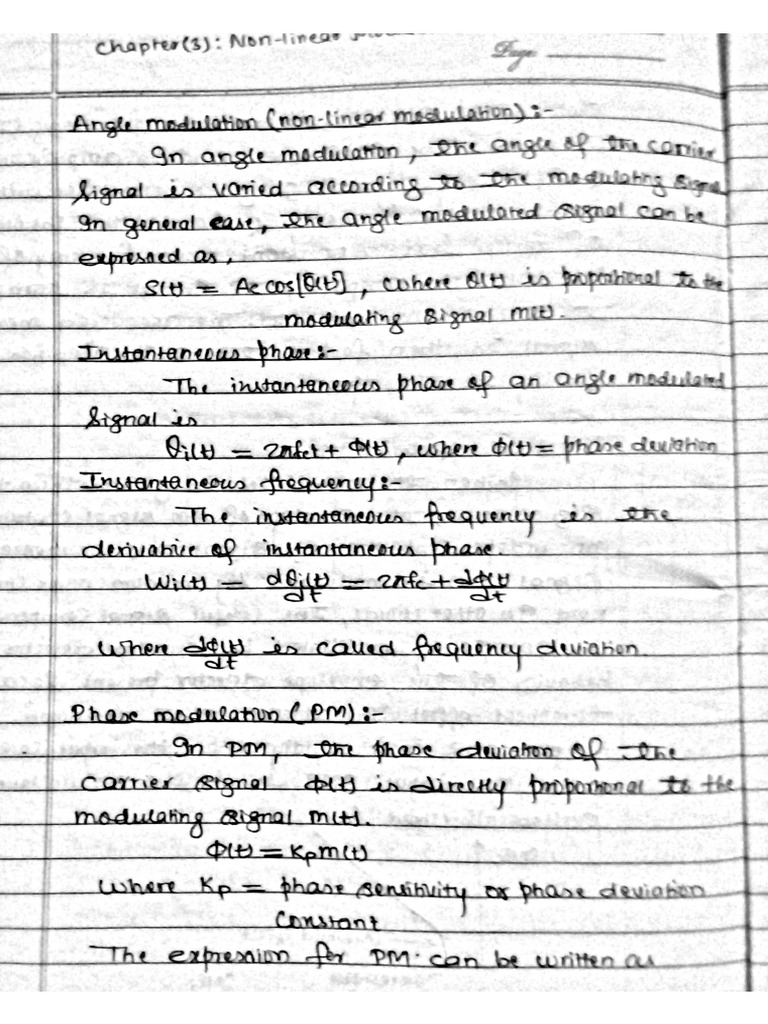 Chapter(3): Non-linear
Page
Angle modulation (non-linear modulation) :-
In angle modulation, the angle of the carrier
signal is varied according to the modulating signal
In general case, the angle modulated signal can be
expressed as,
S(t) = Ac cos[θ(t)], where θ(t) is proportional to the
modulating signal m(t).
Instantaneous phase:-
The instantaneous phase of an angle modulated
signal is
θi(t) = 2πfct + Φ(t), where Φ(t) = phase deviation
Instantaneous frequency:-
The instantaneous frequency is the
derivative of instantaneous phase
Wi(t) = dθi(t)/dt = 2πfc + dφ(t)/dt
Where dφ(t)/dt is called frequency deviation.
Phase modulation (PM) :-
In PM, the phase deviation of the
carrier signal Φ(t) is directly proportional to the
modulating signal m(t).
Φ(t) = Kpm(t)
Where Kp = phase sensitivity or phase deviation
constant
The expression for PM can be written as